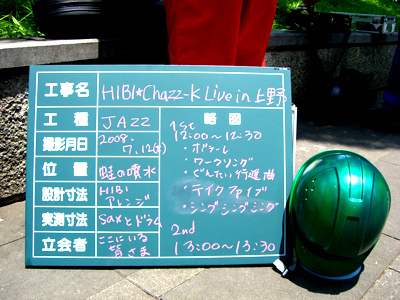 工事名 HIBI★Chazz-K Live in 上野
工種 JAZZ
撮影月日 2008.
7.12(土)
位置 蛙の噴水
設計寸法 HIBI
アレンジ
実測寸法 saxとドラム
立会者 ここにいる
皆さま
略図
1st
12:00〜12:30
・ボラーレ
・ワークソング
・ぐんたい行進曲
・テイクファイブ
・シングシングシング
2nd
13:00〜13:30